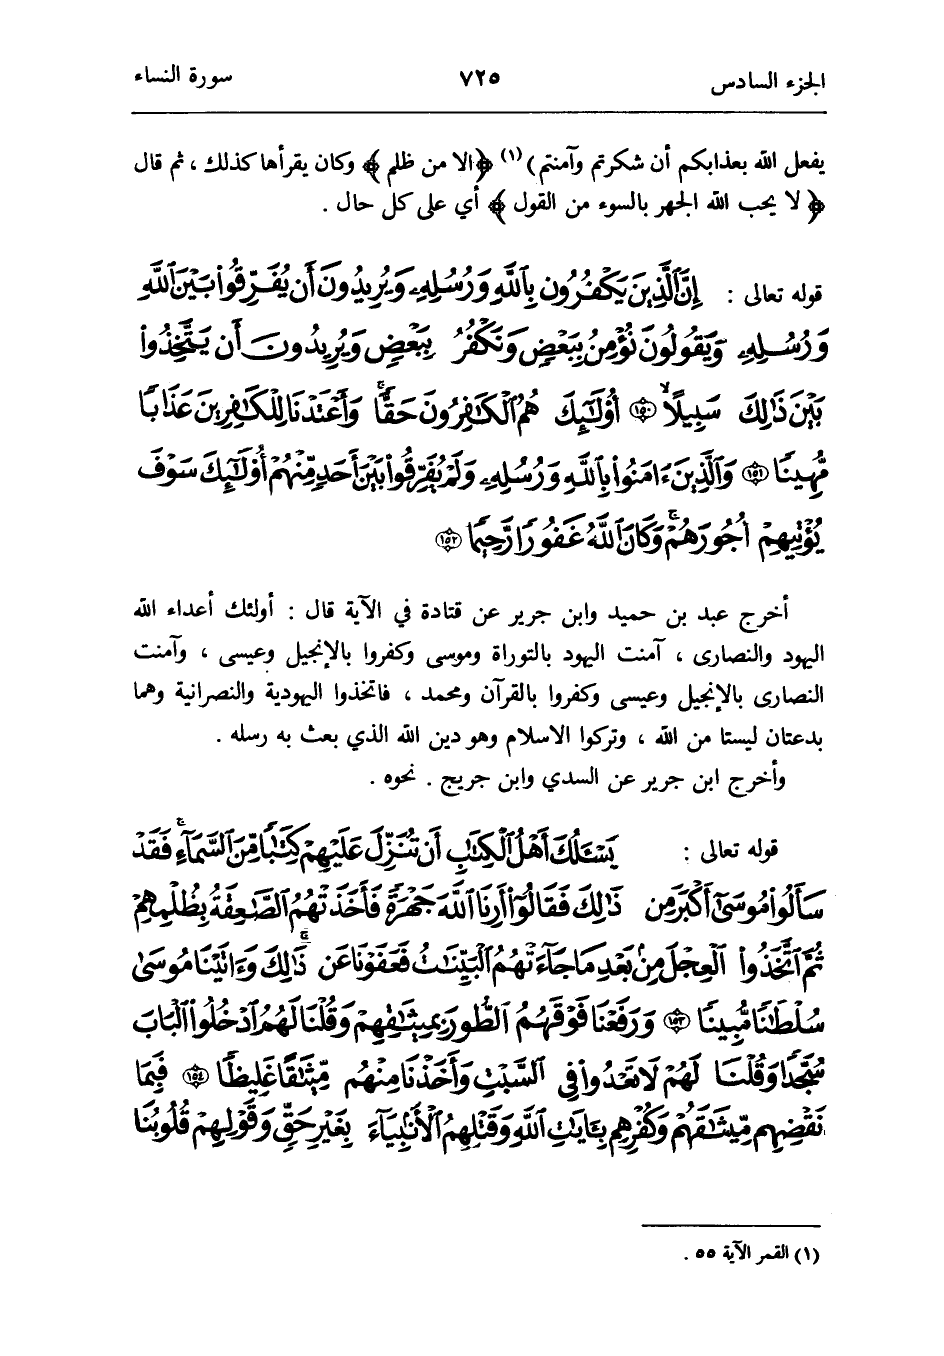 الجزء السادس ٧٢٥ سورة النساء
يفعل الله بعذابكم أن شكرتم وآمنتم) (١) ﴿الا من ظلم﴾ وكان يقرأها كذلك ، ثم قال
﴿ لا يحب الله الجهر بالسوء من القول ﴾ أي على كل حال .
قوله تعالى : إِنَّ ٱلَّذِينَ يَكْفُرُونَ بِٱللَّهِ وَرُسُلِهِۦ وَيُرِيدُونَ أَن يُفَرِّقُوا۟ بَيْنَ ٱللَّهِ
وَرُسُلِهِۦ وَيَقُولُونَ نُؤْمِنُ بِبَعْضٍ وَنَكْفُرُ بِبَعْضٍ وَيُرِيدُونَ أَن يَتَّخِذُوا۟
بَيْنَ ذَٰلِكَ سَبِيلًا ۙ ١٥٠ أُو۟لَـٰٓئِكَ هُمُ ٱلْكَـٰفِرُونَ حَقًّا ۚ وَأَعْتَدْنَا لِلْكَـٰفِرِينَ عَذَابًا
مُّهِينًا ١٥١ وَٱلَّذِينَ ءَامَنُوا۟ بِٱللَّهِ وَرُسُلِهِۦ وَلَمْ يُفَرِّقُوا۟ بَيْنَ أَحَدٍ مِّنْهُمْ أُو۟لَـٰٓئِكَ سَوْفَ
يُؤْتِيهِمْ أُجُورَهُمْ ۚ وَكَانَ ٱللَّهُ غَفُورًا رَّحِيمًا ١٥٢
أخرج عبد بن حميد وابن جرير عن قتادة في الآية قال : أولئك أعداء الله
اليهود والنصارى ، آمنت اليهود بالتوراة وموسى وكفروا بالإنجيل وعيسى ، وآمنت
النصارى بالإنجيل وعيسى وكفروا بالقرآن ومحمد ، فاتخذوا اليهودية والنصرانية وهما
بدعتان ليستا من الله ، وتركوا الاسلام وهو دين الله الذي بعث به رسله .
وأخرج ابن جرير عن السدي وابن جريج . نحوه .
قوله تعالى : يَسْـَٔلُكَ أَهْلُ ٱلْكِتَـٰبِ أَن تُنَزِّلَ عَلَيْهِمْ كِتَـٰبًا مِّنَ ٱلسَّمَآءِ ۚ فَقَدْ
سَأَلُوا۟ مُوسَىٰٓ أَكْبَرَ مِن ذَٰلِكَ فَقَالُوٓا۟ أَرِنَا ٱللَّهَ جَهْرَةً فَأَخَذَتْهُمُ ٱلصَّـٰعِقَةُ بِظُلْمِهِمْ ۚ
ثُمَّ ٱتَّخَذُوا۟ ٱلْعِجْلَ مِنۢ بَعْدِ مَا جَآءَتْهُمُ ٱلْبَيِّنَـٰتُ فَعَفَوْنَا عَن ذَٰلِكَ ۚ وَءَاتَيْنَا مُوسَىٰ
سُلْطَـٰنًا مُّبِينًا ١٥٣ وَرَفَعْنَا فَوْقَهُمُ ٱلطُّورَ بِمِيثَـٰقِهِمْ وَقُلْنَا لَهُمُ ٱدْخُلُوا۟ ٱلْبَابَ
سُجَّدًا وَقُلْنَا لَهُمْ لَا تَعْدُوا۟ فِى ٱلسَّبْتِ وَأَخَذْنَا مِنْهُم مِّيثَـٰقًا غَلِيظًا ١٥٤ فَبِمَا
نَقْضِهِم مِّيثَـٰقَهُمْ وَكُفْرِهِم بِـَٔايَـٰتِ ٱللَّهِ وَقَتْلِهِمُ ٱلْأَنۢبِيَآءَ بِغَيْرِ حَقٍّ وَقَوْلِهِمْ قُلُوبُنَا
(١) القمر الآية ٥٥ .